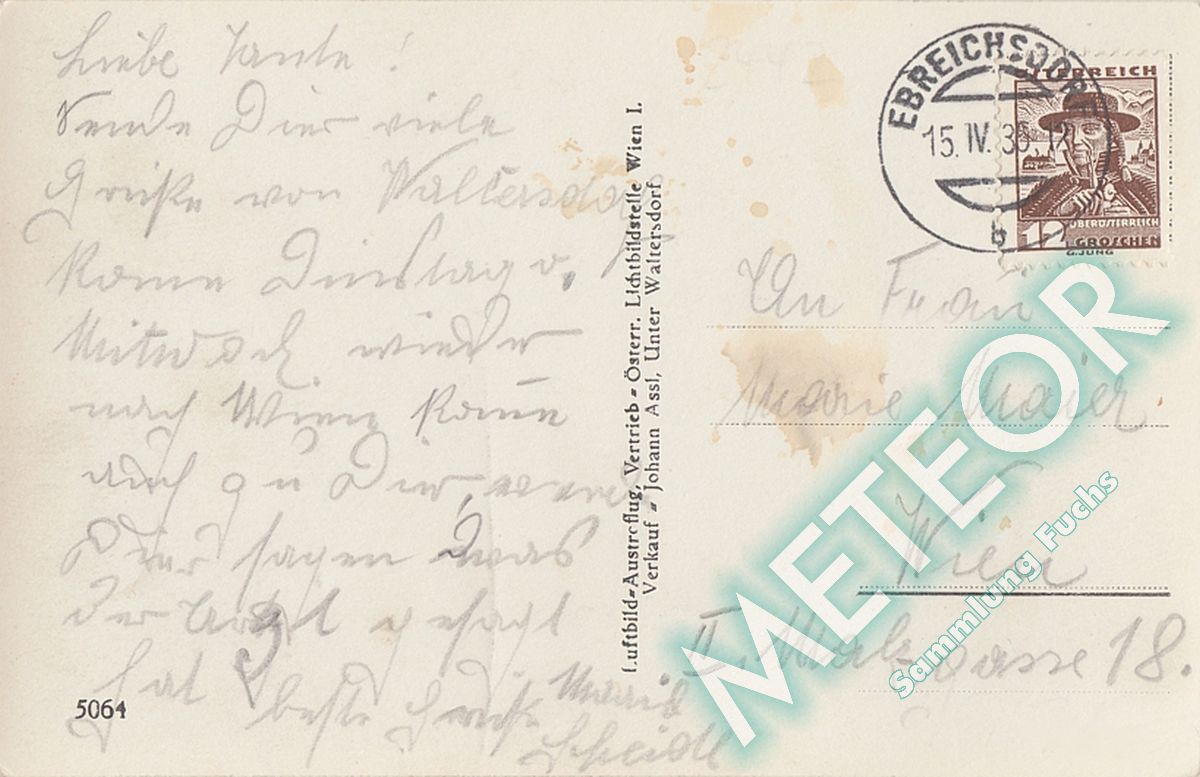 Liebe Tante!
Sende Dir viele
Grüße von Waltersdorf
komme Dienstag o.
Mittwoch wieder
nach Wien komme
auch zu Dir, werde
Dir sagen was
der Arzt gesagt
hat
beste Grüße Marie
5064
Luftbild=Austroflug, Vertrieb = Österr. Lichtbildstelle Wien I.
Verkauf = Johann Assl, Unter Waltersdorf
EBREICHSDORF
15. IV. 36 12
b
ÖSTERREICH
OBERÖSTERREICH
12 GROSCHEN
G.JUNG
An Frau
Marie Maier
Wien
II. Malzgasse 18.
METEOR
Sammlung Fuchs